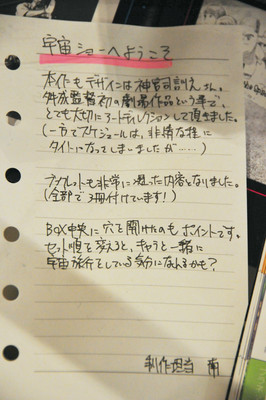 宇宙ショーへようこそ
本作もデザインは神宮司訓之さん。
舛成監督初の劇場作品という事で、
とても大切にアートディレクションして頂きました。
(一方でスケジュールは、非情な程に
タイトになってしまいましたが……)
ブックレットも非常に凝った内容となりました。
(全部で3冊付けています!)
BOX中央に穴を開けたのもポイントです。
セット順を変えると、キャラと一緒に
宇宙旅行をしている気分になれるかも?
制作担当 南